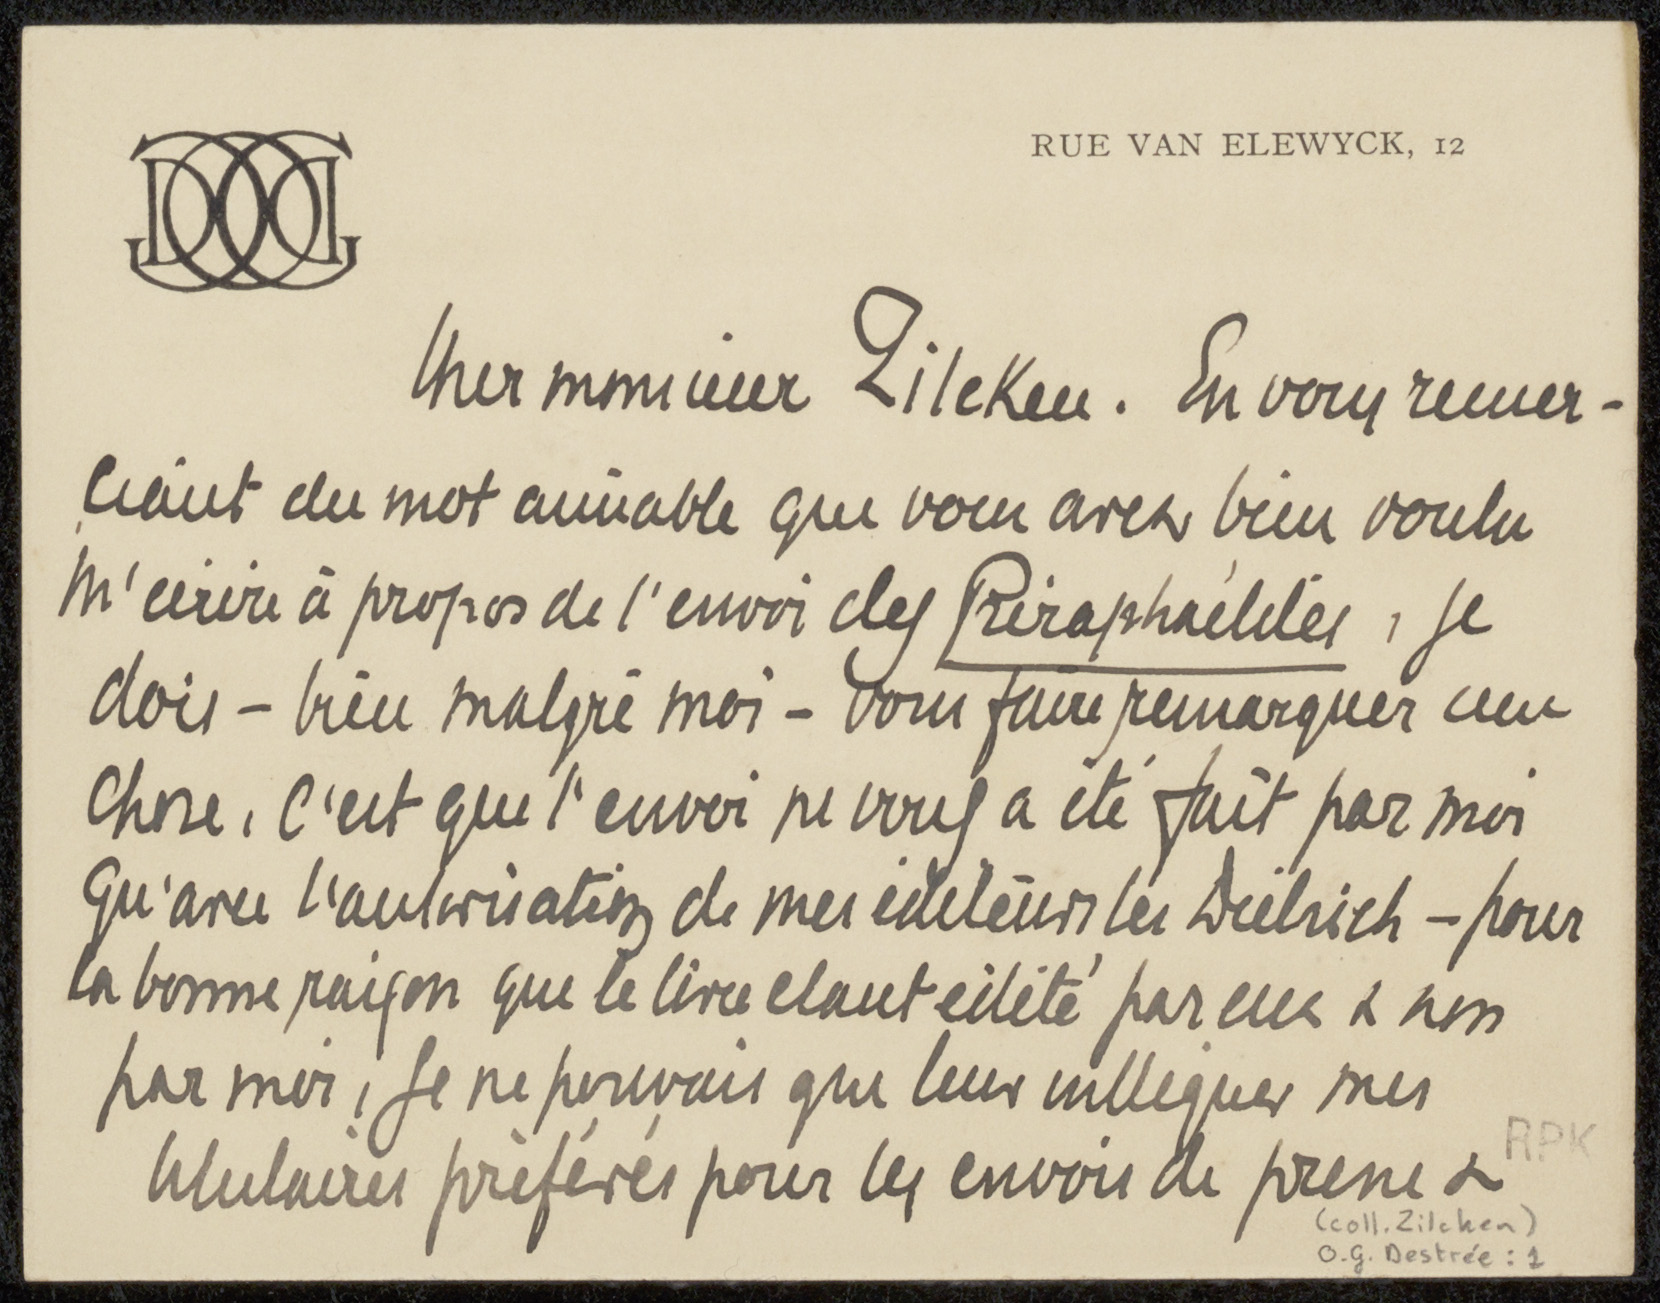 RUE VAN ELEWYCK, 12
Cher monsieur Zilcken. En vous remer-
ciant du mot aimable que vous avez bien voulu
m'écrire à propos de l'envoi des Préraphaélites, je
dois - bien malgré moi - vous faire remarquer une
chose, c'est que l'envoi ne vous a été fait par moi
qu'avec l'autorisation de mes éditeurs les Dietrich - pour
la bonne raison que le livre étant édité par eux & non
par moi, je ne pouvais que leur indiquer mes
titulaires préférés pour les envois de presse &
RPK
(coll. Zilcken)
O.G. Destrée : 1